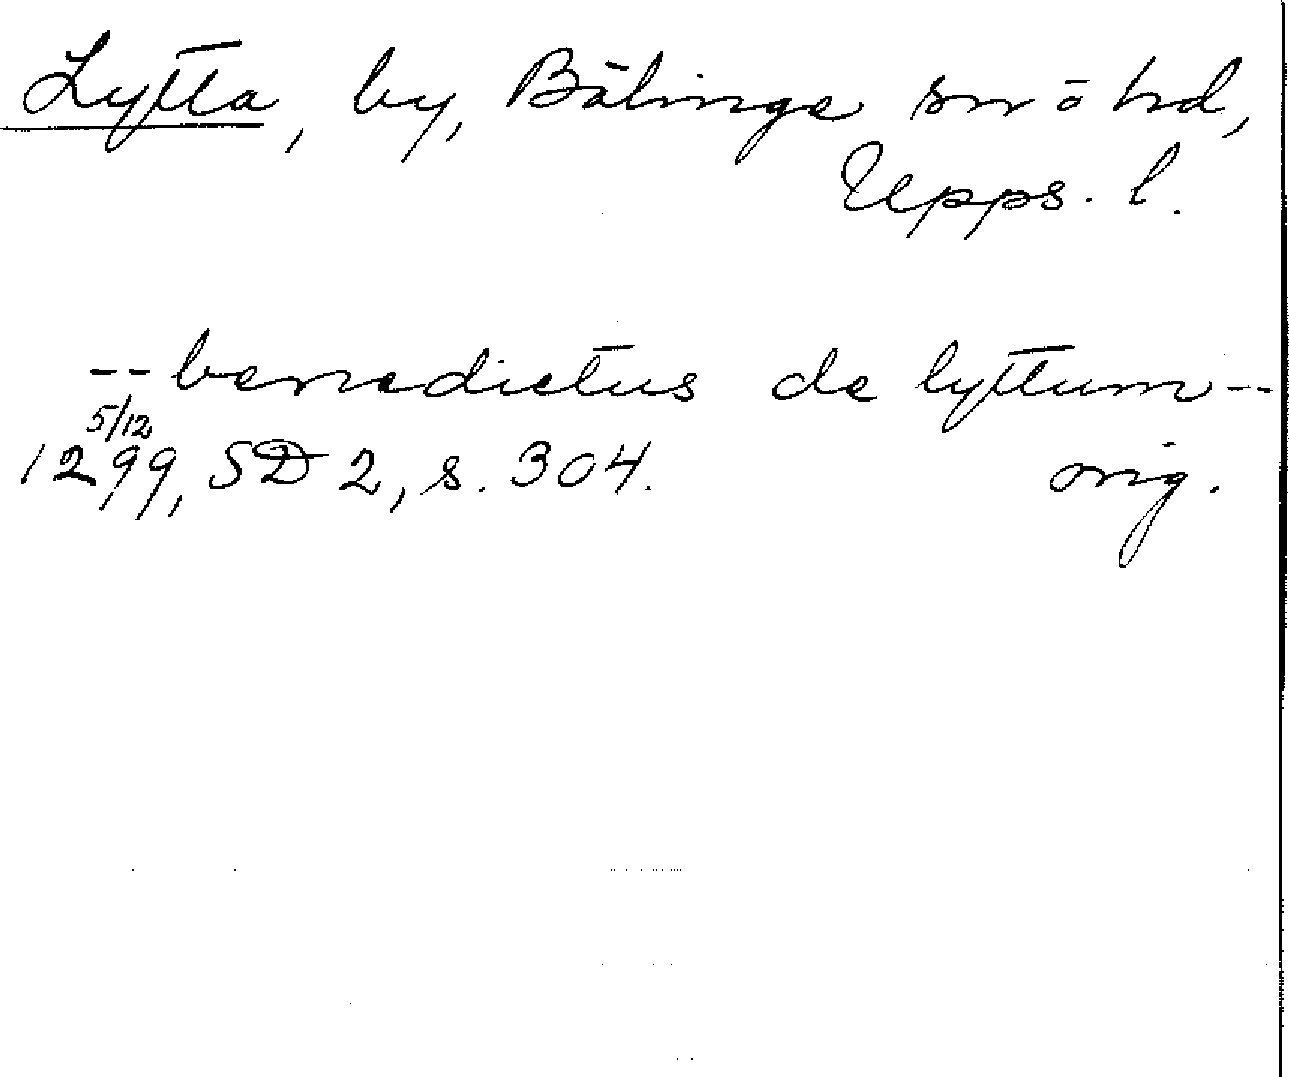 Lytta, by, Bälinge sn o hd,
Upps. l.
-- benedictus de lyttum --
5/12
1299, SD 2, s. 304. orig.